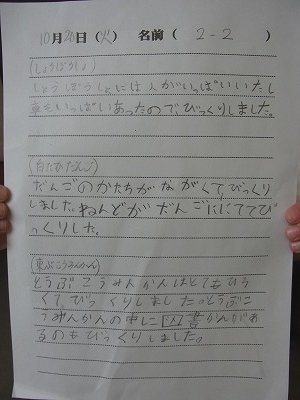 10月20日(火) 名前( 2-2 )
(しょうぼうしょ)
しょうぼうしょには人がいっぱいいたし
車もいっぱいあったので、びっくりしました。
(白たびだんご)
だんごのかたちがながくて、びっくり
しました。ねんどがだんごににててび
っくりした。
(東ぶこうみんかん)
とうぶこうみんかんはとてもひろ
くて、びっくりしました。とうぶこ
うみんかんの中に図書かんがあ
るのもびっくりしました。